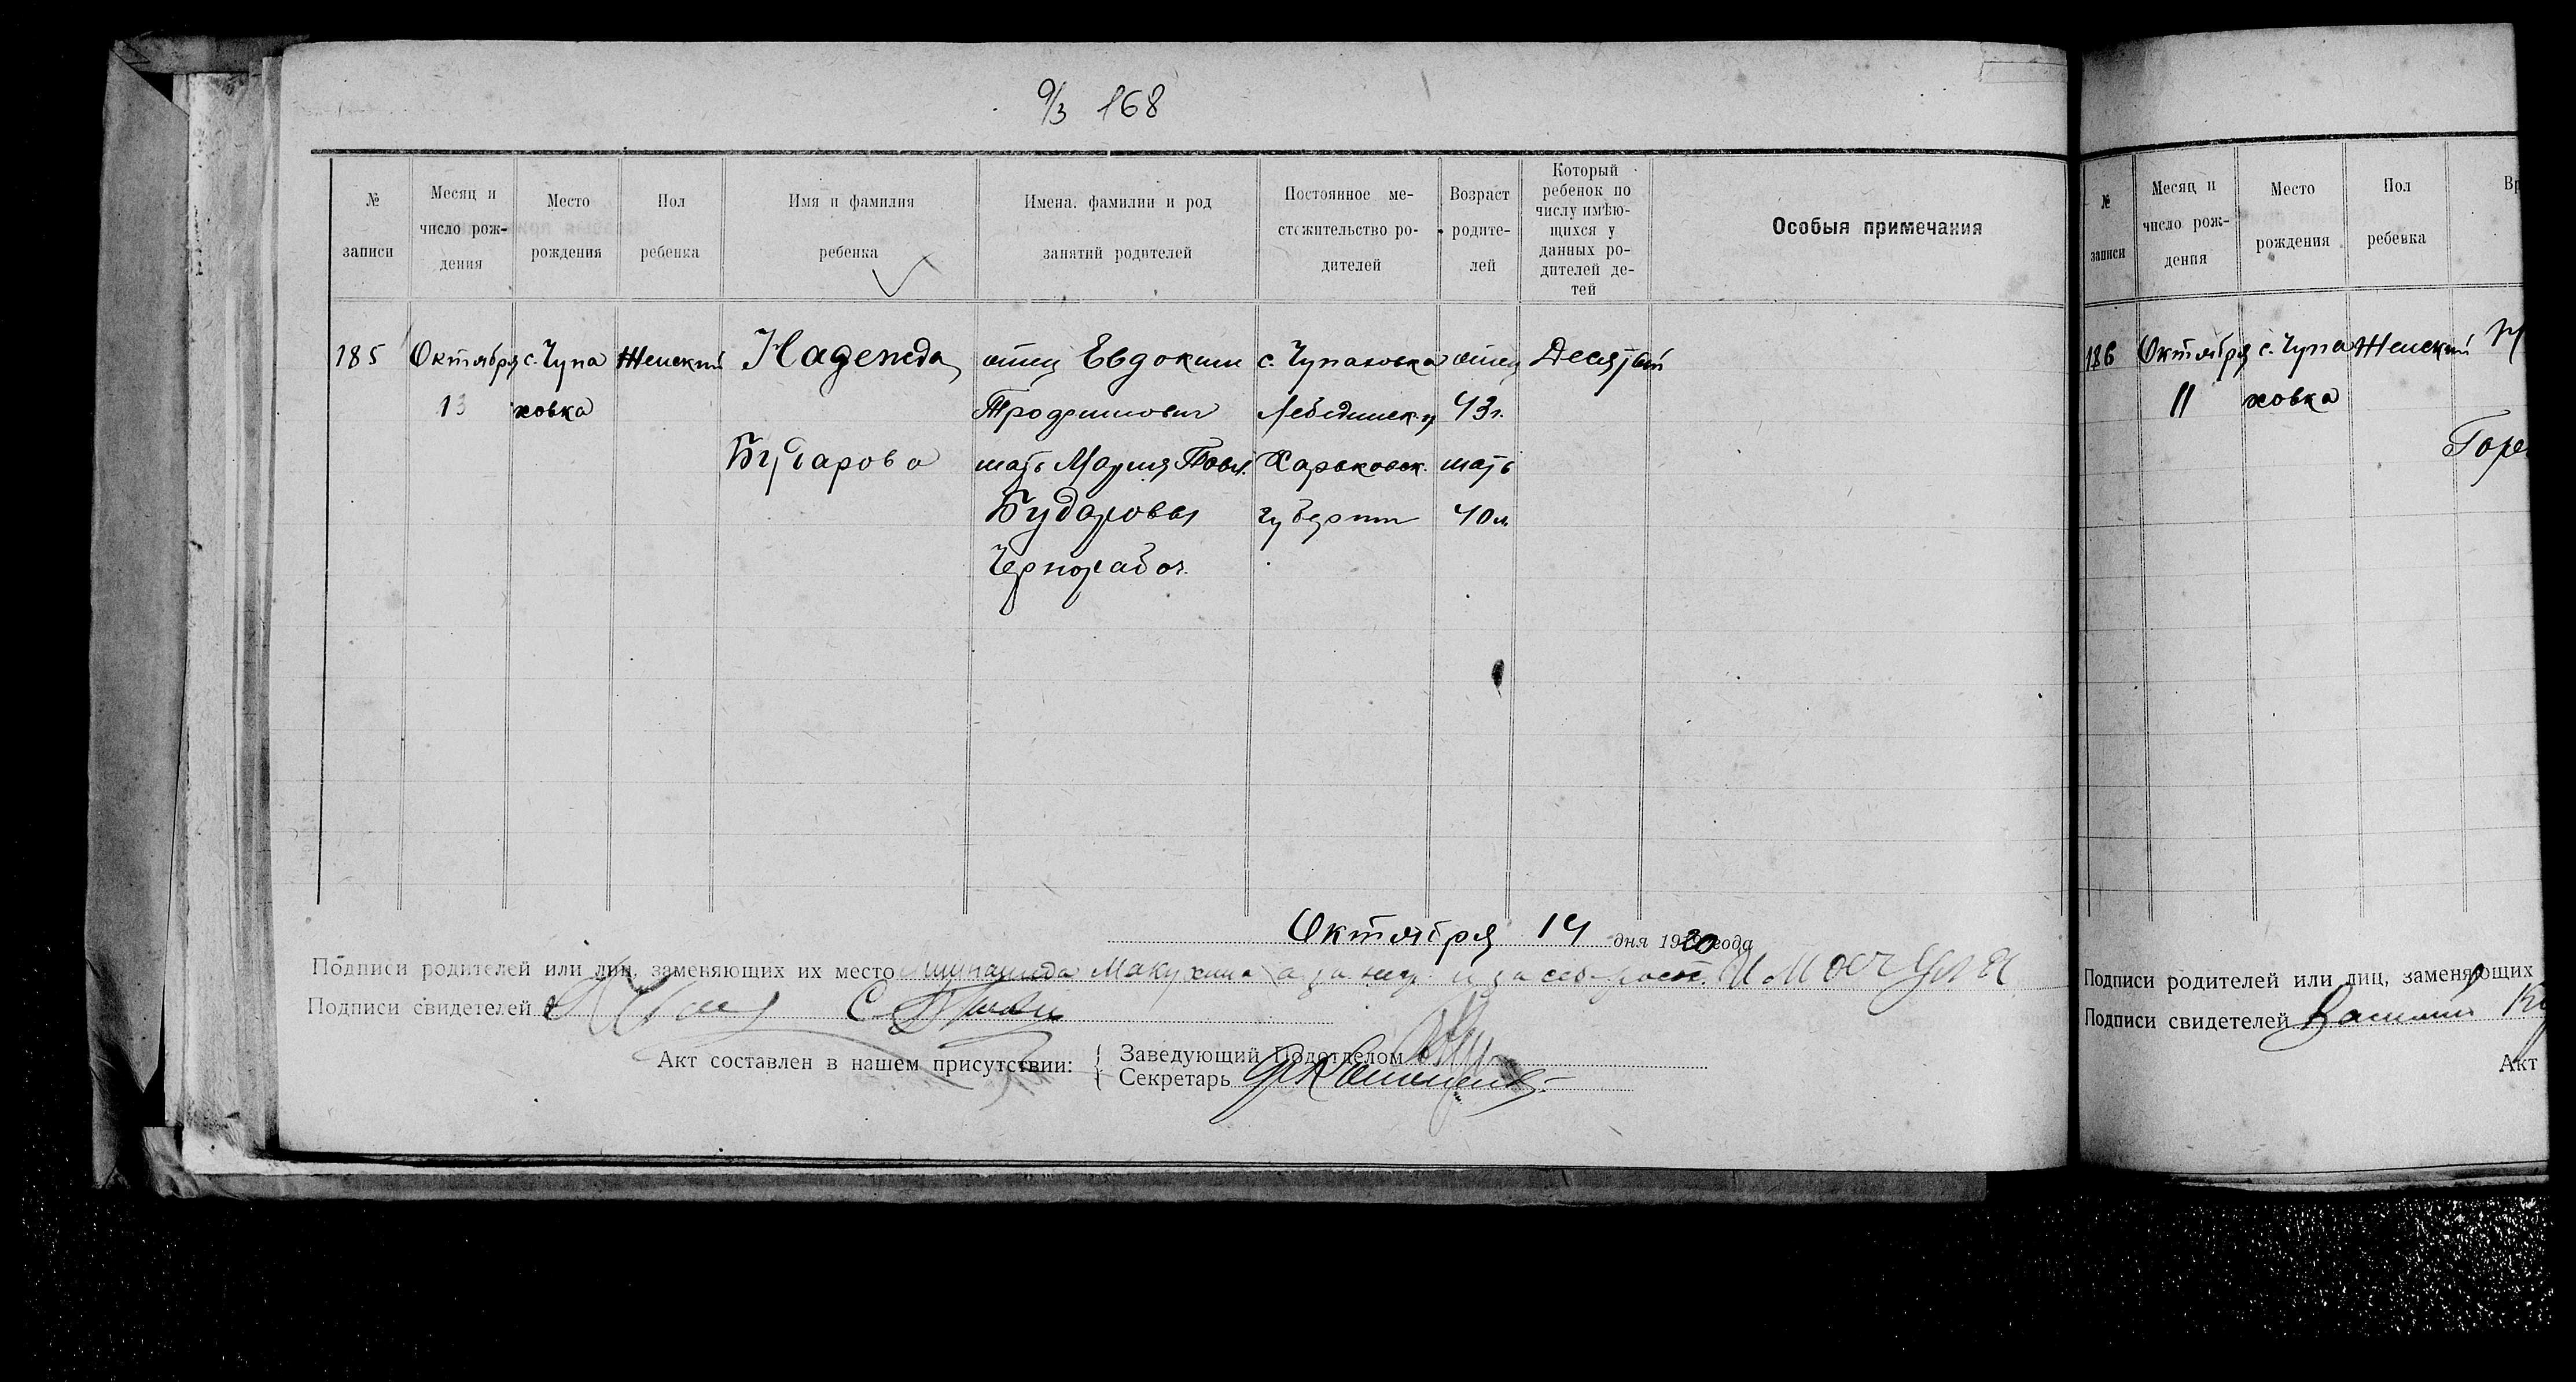 9/3 168
№ записи
Месяц и число рож-дения
Место рождения
Пол ребенка
Имя и фамилия ребенка
Имена, фамилии и род занятий родителей
Постоянное ме-стожительство ро-дителей
Возраст родите-лей
Который ребенок по числу имѣю-щихся у данных ро-дителей де-тей
Особыя примечания
185 Октября с. Чупа Женский Надежда отец Евдоким с. Чупаховка отец Десятый
13 ховка Лебединск. у 43 г.
Бударова мать Мария Павл. Харьковск. мать
Бударовы губернии 40 л.
Чернорабоч.
Октября 14 дня 1920 года
Подписи родителей или лиц, заменяющих их место
Подписи свидетелей
Акт составлен в нашем присутствии:
Заведующий Подотделом
Секретарь
№ записи
Месяц и число рож-дения
Место рождения
Пол ребенка
186 Октября с. Чупа Женский
11 ховка
Подписи родителей или лиц, заменяющих
Подписи свидетелей Василий
Акт